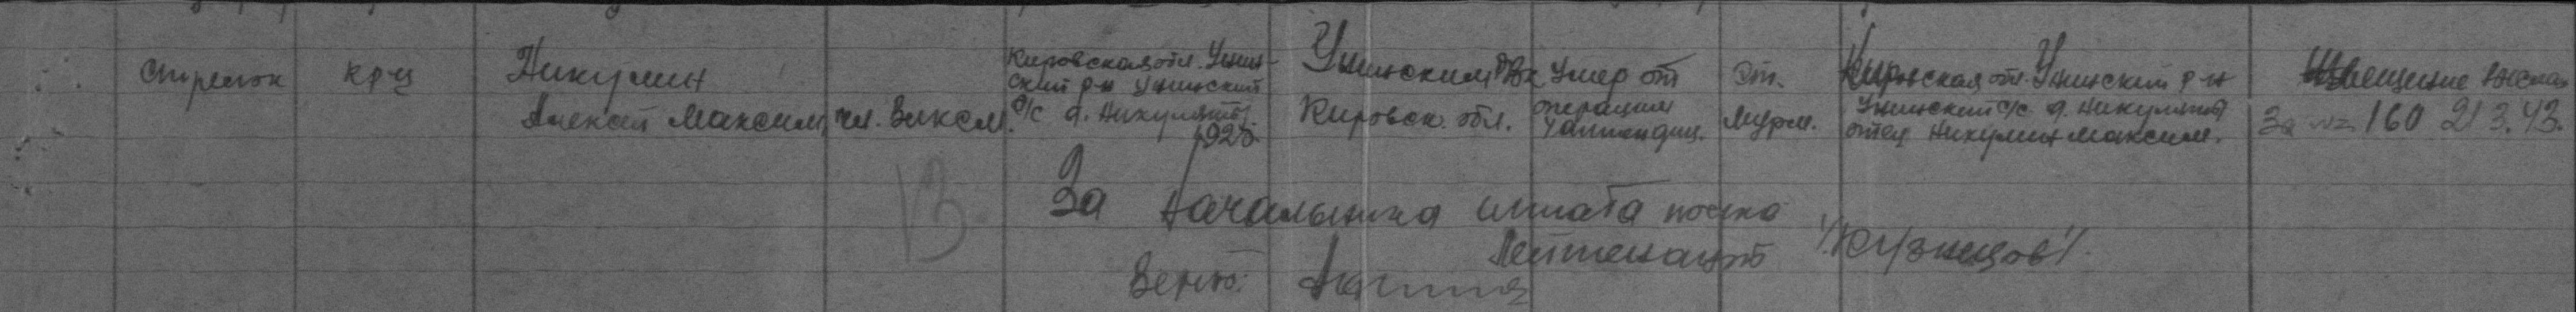 Стрелок
кр-ц
Никулин
Алексей Максим.
чл. ВЛКСМ.
Кировская обл. Унин-
ский р-н Унинский
с/с д. Никулята
1925
Унинским РВК
Кировск. обл.
Умер от
операции
Ст.
Мурм.
Кировская обл. Унинский р-н
Унинский с/с. д. Никулята
отец Никулин Максим.
Извещение выслан
За № 160 21 3.43.
ВЗ
За начальника штаба полка
Лейтенант /Кузнецов/.
Верно: